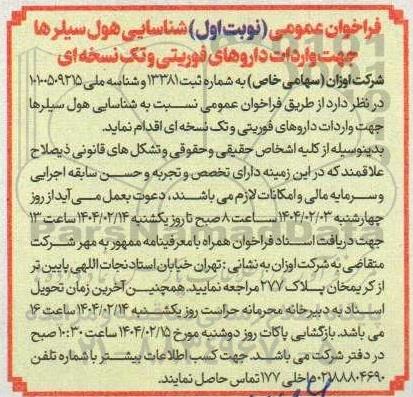 فراخوان عمومی (نوبت اول) شناسایی هول سیلر ها
جهت واردات داروهای فوریتی و تک نسخه ای
شرکت اوزان (سهامی خاص) به شماره ثبت ۱۳۳۸۱ و شناسه ملی ۱۰۱۰۰۵۰۹۲۱۵
در نظر دارد از طریق فراخوان عمومی نسبت به شناسایی هول سیلرها
جهت واردات داروهای فوریتی و تک نسخه ای اقدام نماید.
بدینوسیله از کلیه اشخاص حقیقی و حقوقی و تشکل های قانونی ذیصلاح
علاقمند که در این زمینه دارای تخصص و تجربه و حسن سابقه اجرایی
و سرمایه مالی و امکانات لازم می باشند، دعوت بعمل می آید از روز
چهارشنبه ۱۴۰۴/۰۲/۰۳ ساعت ۸ صبح تا روز یکشنبه ۱۴۰۴/۰۲/۱۴ ساعت ۱۳
جهت دریافت اسناد فراخوان همراه با معرفینامه ممهور به مهر شرکت
متقاضی به شرکت اوزان به نشانی: تهران خیابان استاد نجات اللهی پایین تر
از کریمخان پلاک ۲۷۷ مراجعه نمایید. همچنین آخرین زمان تحویل
اسناد به دبیرخانه محرمانه حراست روز یکشنبه ۱۴۰۴/۰۲/۱۴ ساعت ۱۶
می باشد. بازگشایی پاکات روز دوشنبه مورخ ۱۴۰۴/۰۲/۱۵ ساعت ۱۰:۳۰ صبح
در دفتر شرکت می باشد. جهت کسب اطلاعات بیشتر با شماره تلفن
۰۲۱۸۸۸۰۴۶۹۰ داخلی ۱۷۷ تماس حاصل نمایند.